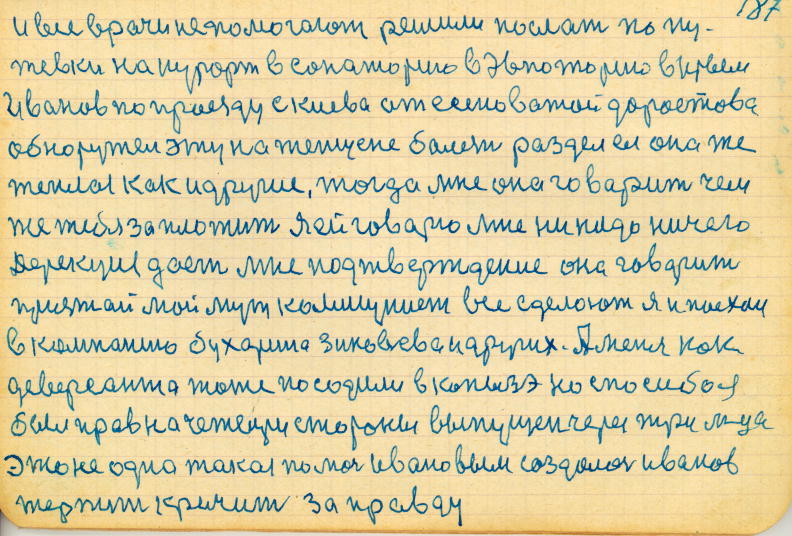 187
и все врачи непомогают решили послат по пу-
тевки на курорт в сонаторию в Эвпоторию в крым
Иванов по проезду с киева от есеноватой доростова
обноружел эту на женщене балезн разделел она же
тепла как и другие, тогда мне она говарит чем
же тебя заплотит я ей говарю мне ни нидо ничего
дерекция дает мне подтверждение она говарит
приежай мой муж коммунист все сделоют я и поехал
в компанию бухарина зиновева и других. А меня как
деверсанта тоже посодили в капызэ но спосибо я
был прав на четыри стороны выпущен через три м-ца
это не одна такая помоч ивановым создалос иванов
терпит кричит за правду